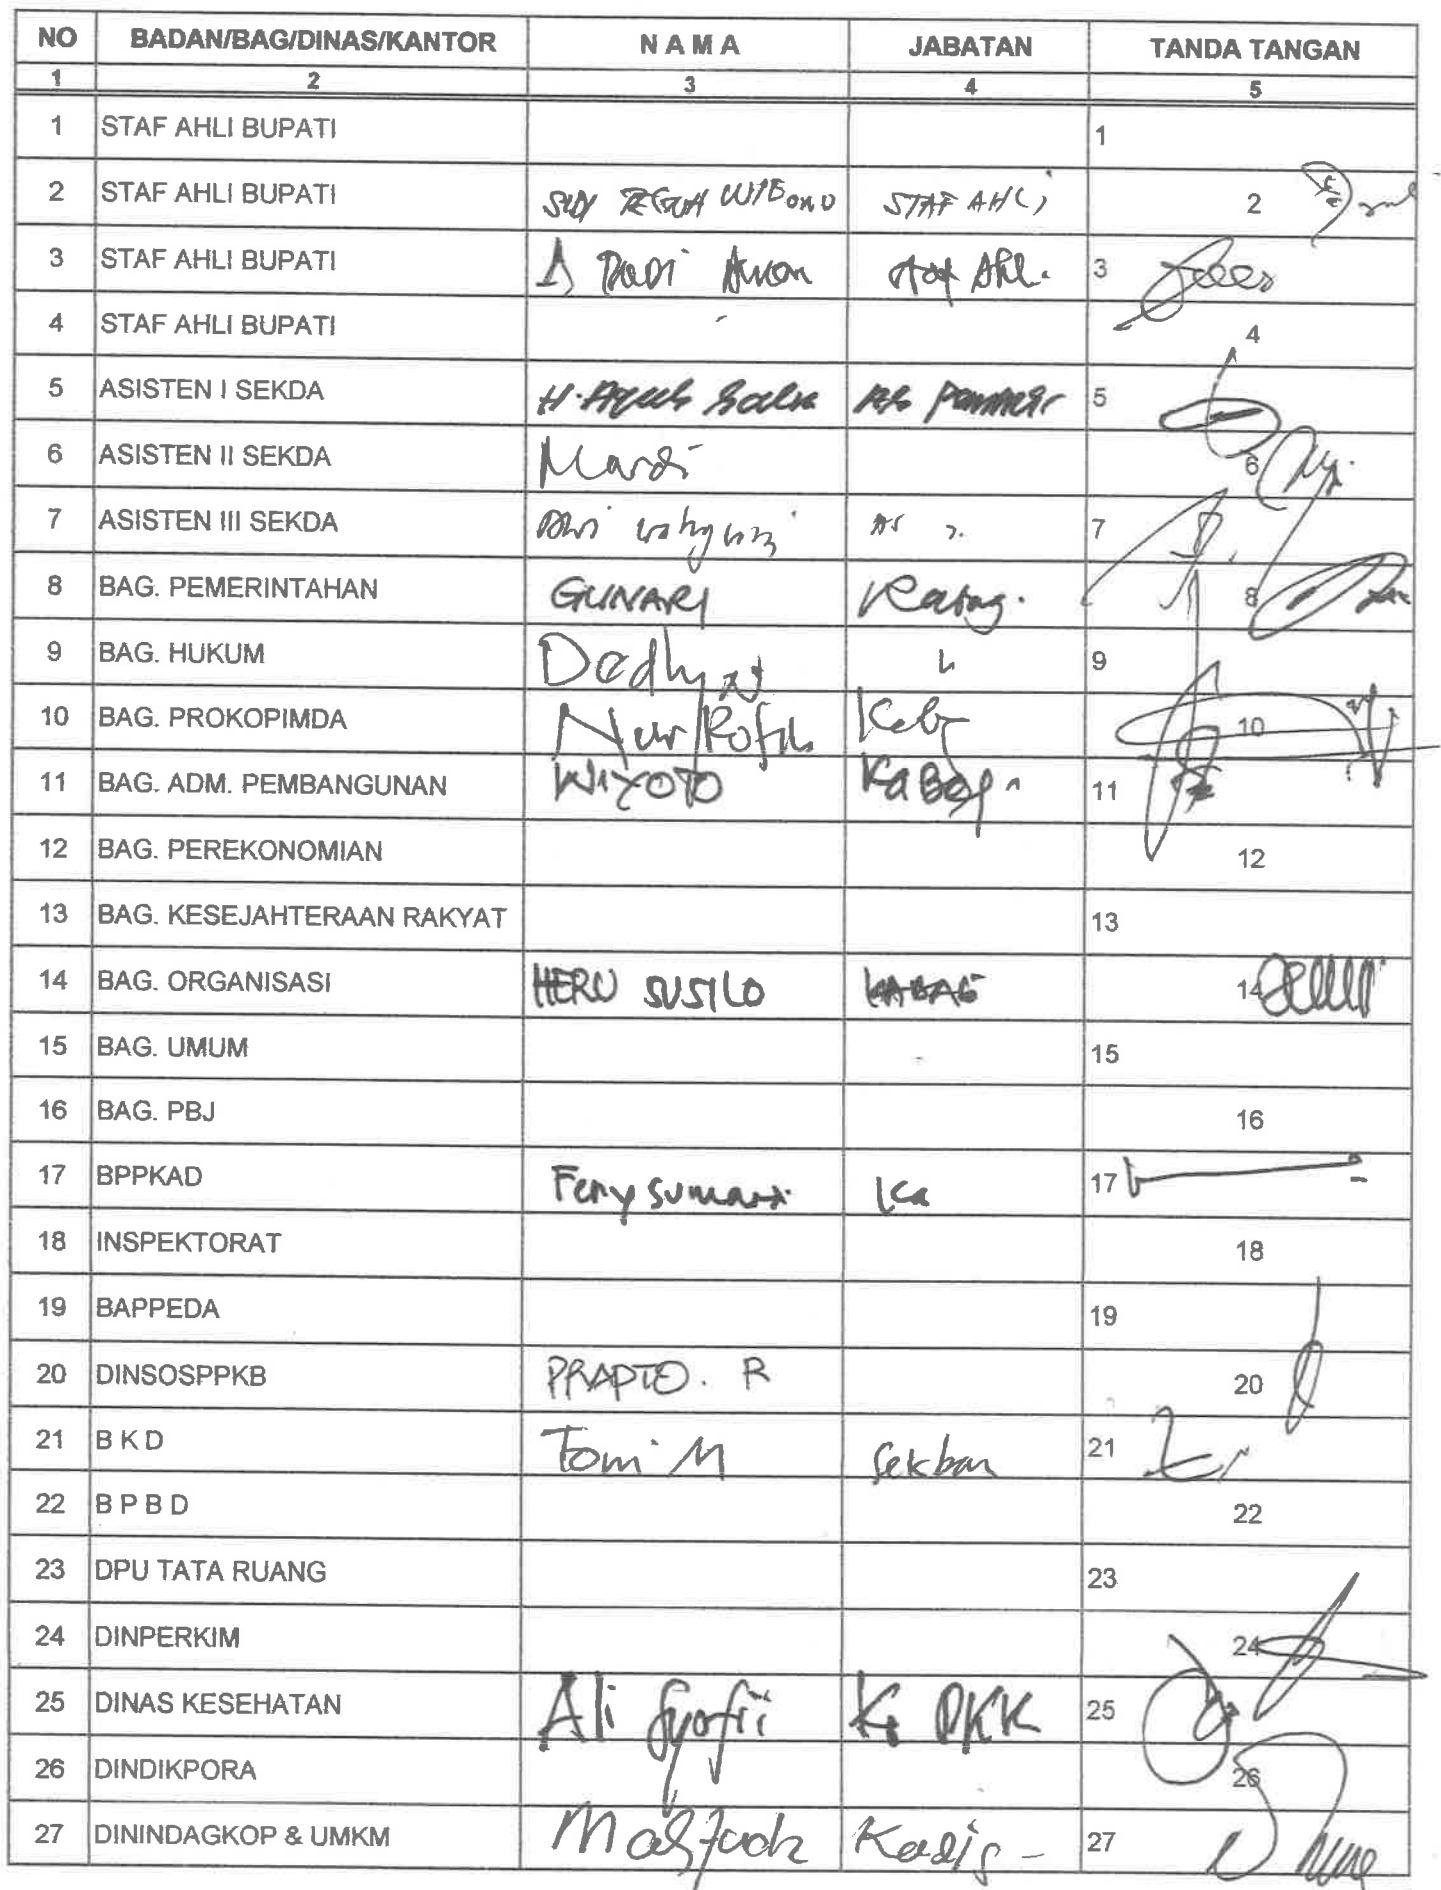 NO BADAN/BAG/DINAS/KANTOR N A M A JABATAN TANDA TANGAN
1 2 3 4 5
1 STAF AHLI BUPATI 1
2 STAF AHLI BUPATI TEGUH WIBOWO STAF AHLI 2
3 STAF AHLI BUPATI Staf Ahli. 3
4 STAF AHLI BUPATI 4
5 ASISTEN I SEKDA H. Agus 5
6 ASISTEN II SEKDA Mardi 6
7 ASISTEN III SEKDA 7
8 BAG. PEMERINTAHAN GUNARI Kabag. 8
9 BAG. HUKUM Dedhy 9
10 BAG. PROKOPIMDA Nur Rofik 10
11 BAG. ADM. PEMBANGUNAN WIYOTO KaBag 11
12 BAG. PEREKONOMIAN 12
13 BAG. KESEJAHTERAAN RAKYAT 13
14 BAG. ORGANISASI HERU SUSILO KABAG 14
15 BAG. UMUM 15
16 BAG. PBJ 16
17 BPPKAD Fery Sumardi Ka 17
18 INSPEKTORAT 18
19 BAPPEDA 19
20 DINSOSPPKB PRAPTO. R 20
21 B K D Tomi M Sekban 21
22 B P B D 22
23 DPU TATA RUANG 23
24 DINPERKIM 24
25 DINAS KESEHATAN Ali Syofii Ka DKK 25
26 DINDIKPORA 26
27 DININDAGKOP & UMKM Kadis - 27